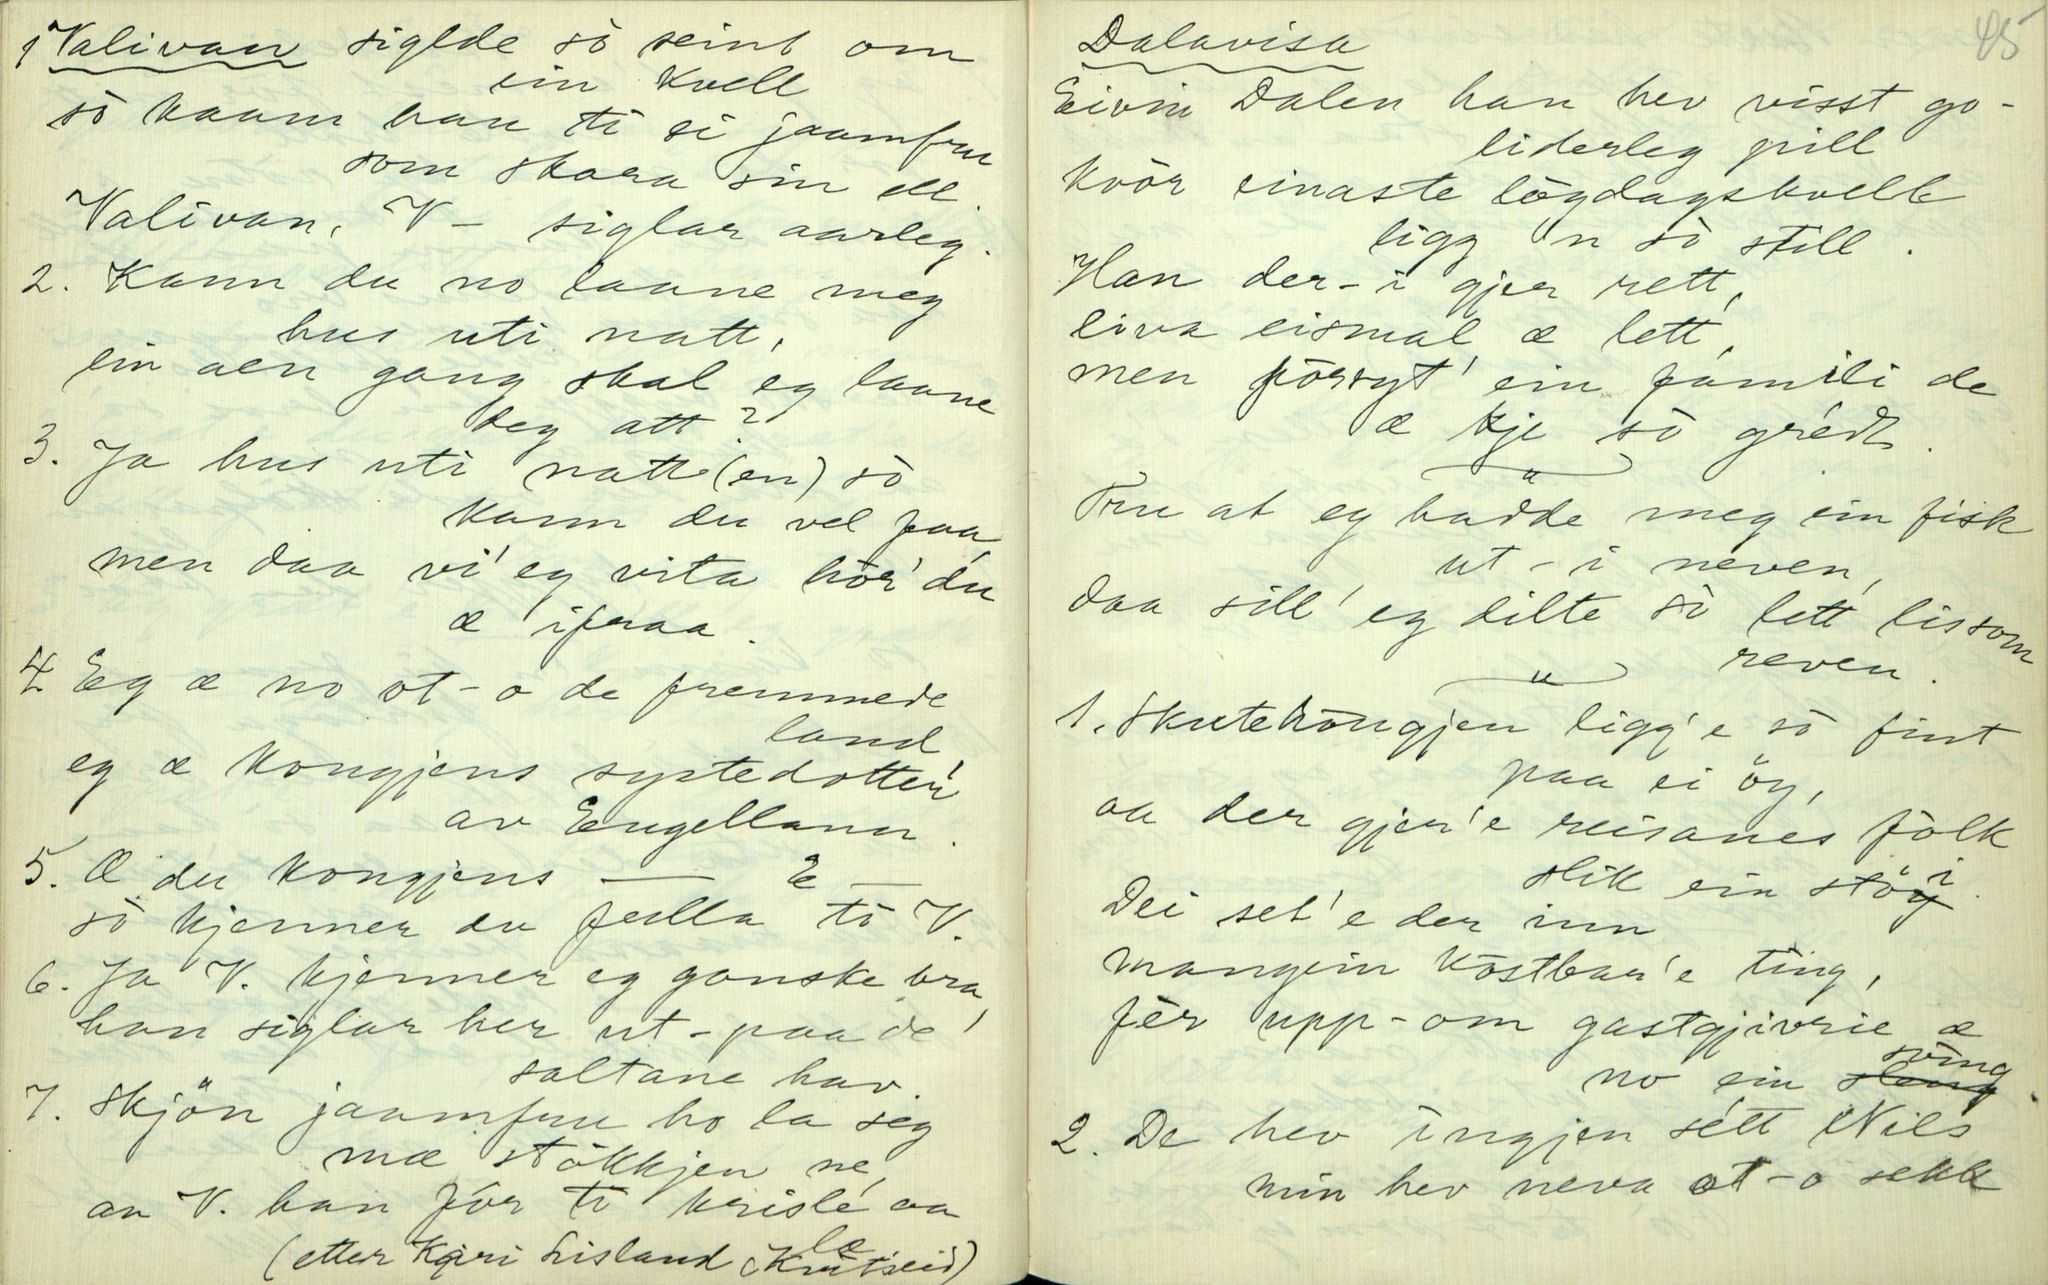 1 Valivan siglde sò seint om
ein kvell
sò kaam han ti ei jaamfru
som skara sin ell.
Valivan, V – siglar aarleg.
2. Kann du no laane meg
hus uti natt,
ein aen gang skal eg laane
deg att?
3. Ja hus uti natt(en) sò
kann du vel faa,
men daa vi' eg vita hòr' du
æ ifraa.
4 Eg æ no ot-o de fremmede
land
eg æ kongjens systedotter
av Engelland.
5. Æ du kongjens — E —
sò kjenner du fulla ti V.
6. Ja V. kjenner eg ganske bra,
han siglar her ut-paa de'
saltane hav.
7. Skjön jaamfru ho la seg
mæ stökkjen ne,
an V. han fór ti krislé aa
læ
(etter Kari Lisland Krutseid)
45
Dalavisa
Eivin Dalen han hev visst go-
liderleg pill
kvör einaste lögdagskvell
ligg 'n sò still.
Han der-i gjer rett,
liva eismal æ lett,
men försyt' ein famili de
æ kje sò grédt.
"
Tru at eg hadde meg ein fisk
ut-i neven,
daa sill' eg dilte sò lett lissom
reven.
"
1. Skuteköngjen ligg'e sò fint
paa ei öy,
aa der gjer'e reisanes folk
slik ein stöi.
Dei set'e der inn
mangein köstbar'e ting,
fèr upp-om gastgjivrie æ
no ein sving
2. De hev ingjen sétt Nils
min hev neva ot-o sekk